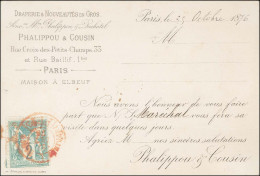 DRAPERIE & NOUVEAUTÉS EN GROS
PHALIPPOU & COUSIN
Rue Croix-des-Petits-Champs, 33
et Rue Baillif, 1
PARIS
MAISON A ELBEUF
Paris, le 29 Octobre 187
M
Nous avons l'honneur de vous faire
part que N. S. Maréchal vous fera sa
visite dans quelques jours.
Agréez M nos sincères salutations
Phalippou & Cousin